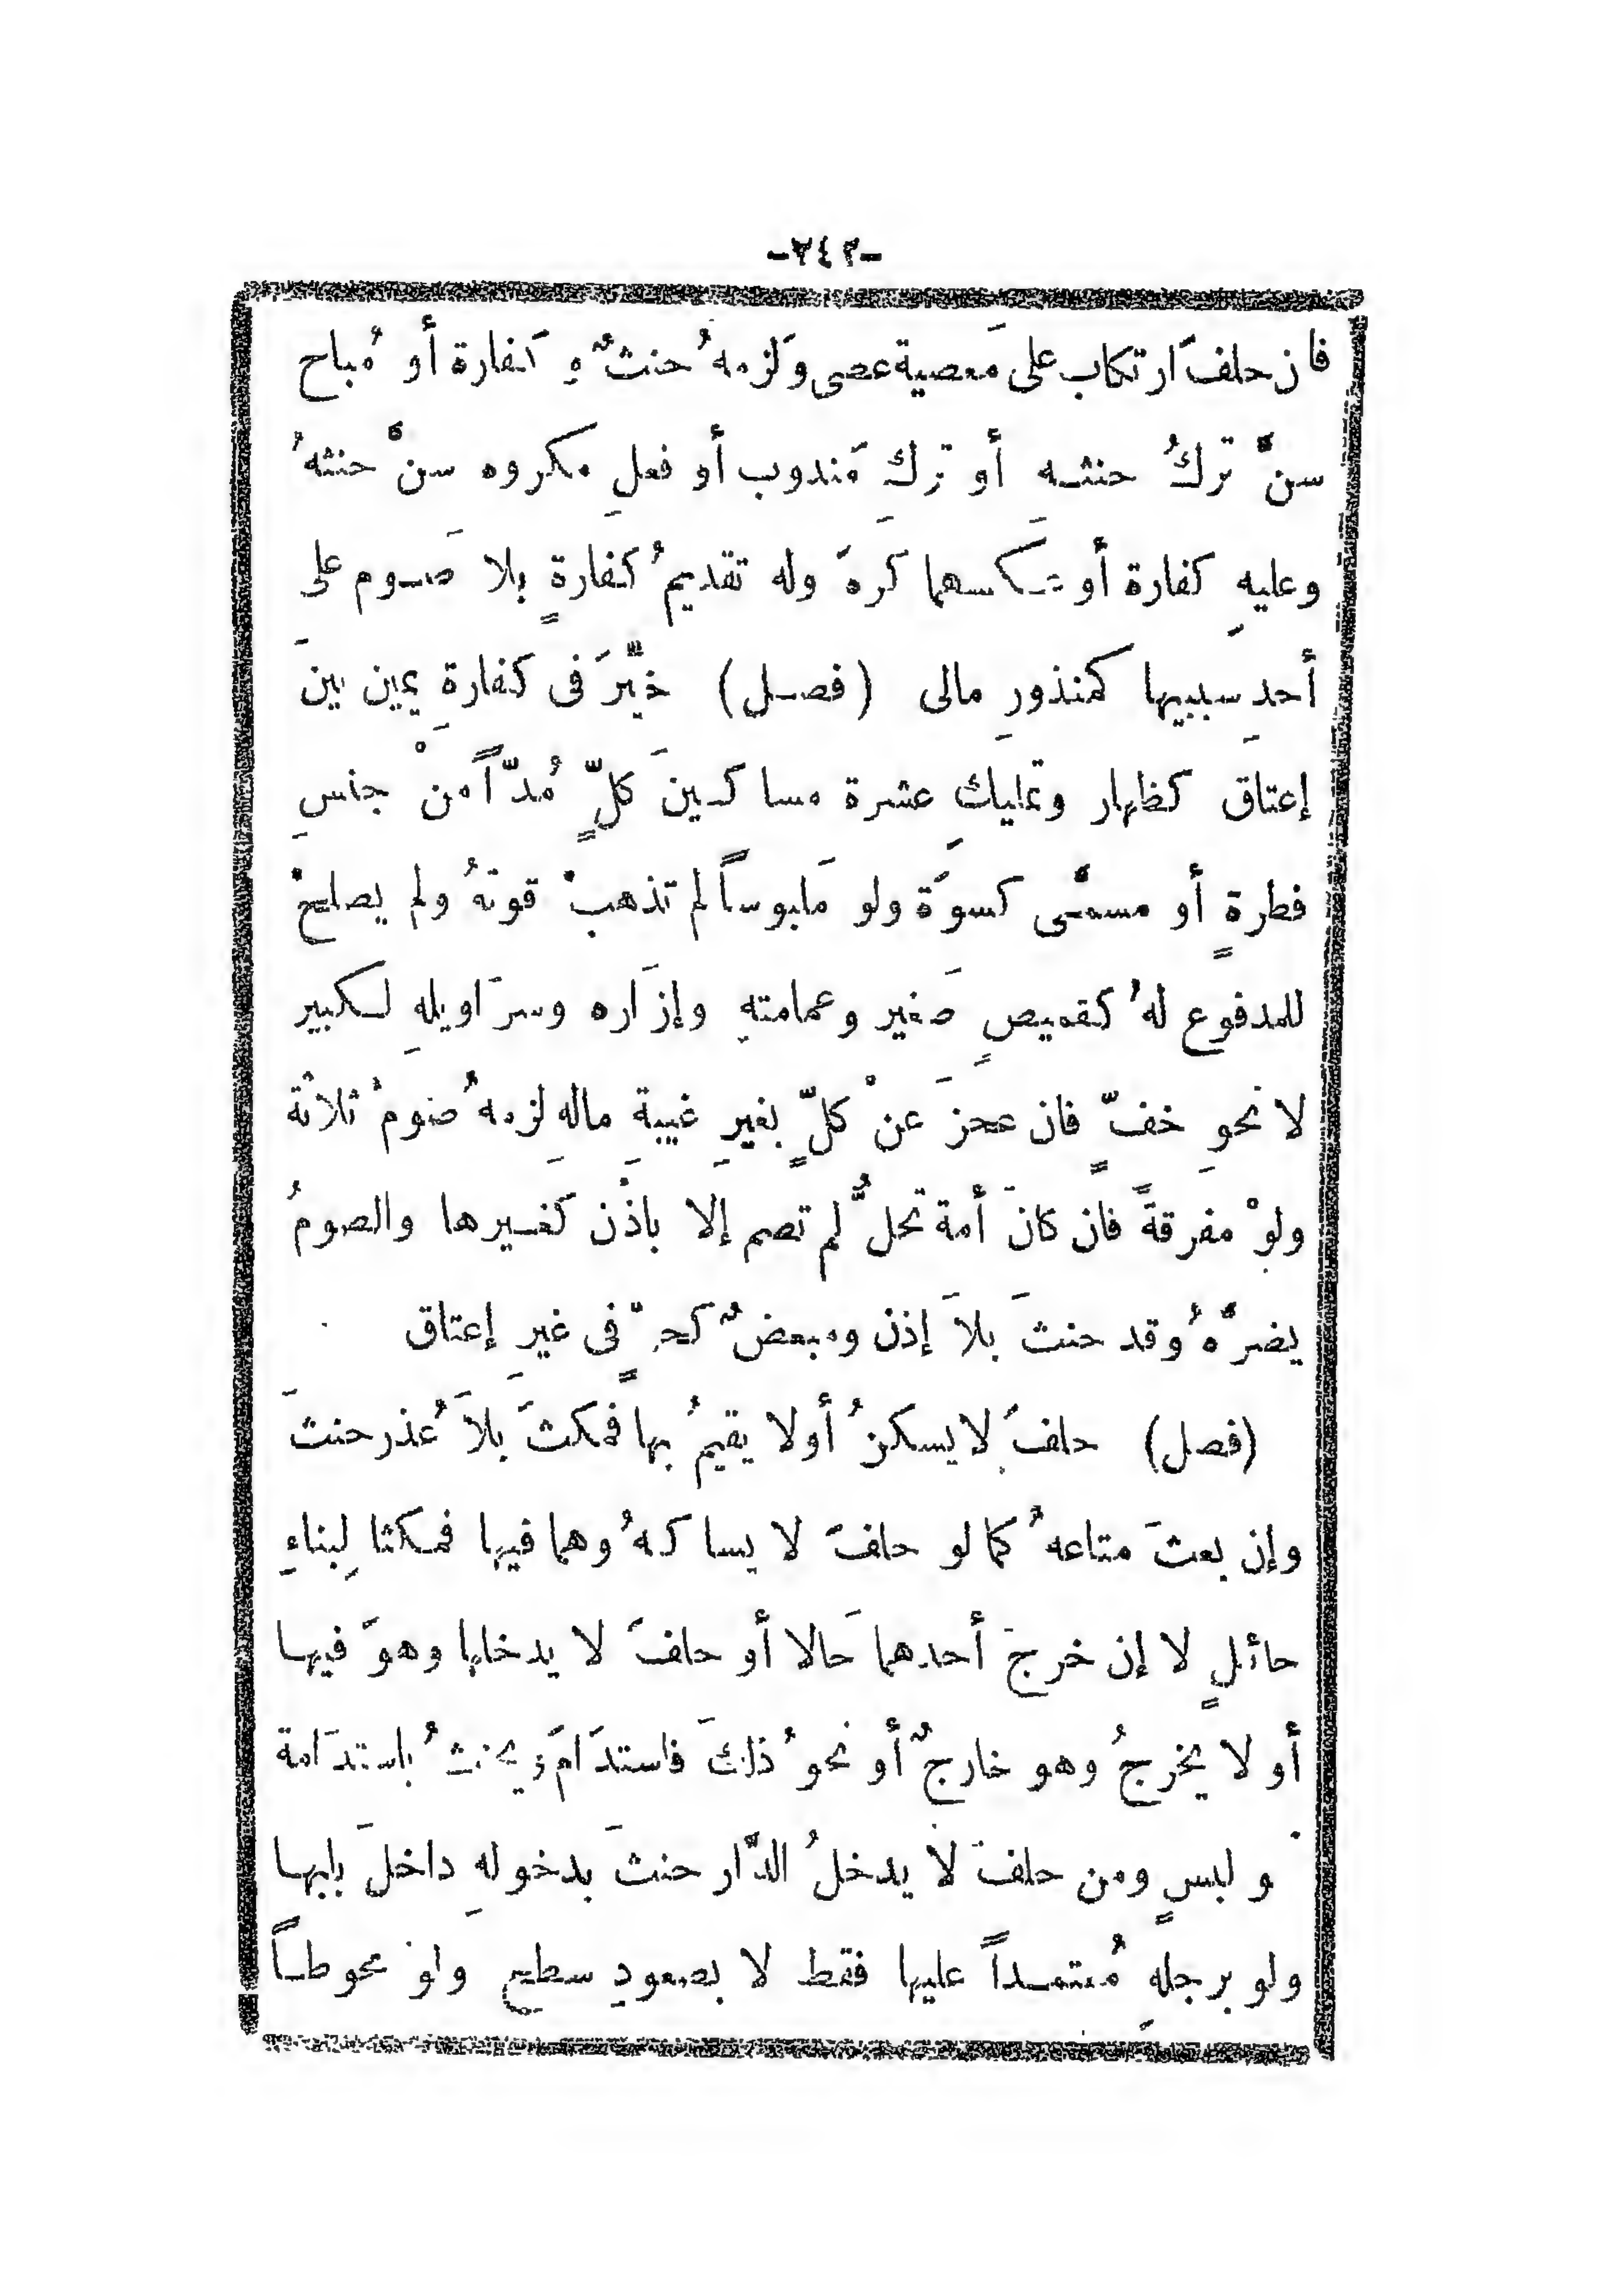 -٢٤٢-
فان حلفَ ارتكاب على مَعصية عصى وَلزمهُ حنثٌ وَكفارة أو مُباح
سنَّ تركُ حنثه أو تركِ مَندوب أو فعلِ مكروه سنَّ حنثهُ
وعليهِ كفارة أو عكسهما كرهَ وله تقديمُ كفارةٍ بلا صَوم على
أحدِ سببيها كمنذورِ مالى (فصل) خيِّرَ فى كفارةِ يمين بينَ
إعتاقَ كظهار وتمليكِ عشرة مساكينَ كلٍّ مُدّاً منْ جنسِ
فطرةٍ أو مسمَّى كسوَة ولو مَلبوساً لم تذهبْ قوتهُ ولم يصلحْ
للمدفوع لهُ كقميصٍ صَغير وعمامتهِ وإزَاره وسرَاويلهِ لكبير
لا نحوِ خفٍّ فان عجزَ عنْ كلٍّ بغيرِ غيبةِ مالهِ لزمهُ صومُ ثلاثة
ولوْ مفرقةً فان كانَ أمة تحلُّ لم تصم إلا باذْن كغيرها والصومُ
يضرّهُ وقد حنثَ بلاَ إذن ومبعضٌ كحرٍّ فى غيرِ إعتاق
(فصل) حلفَ لا يسكنُ أولا يقيمُ بها فمكثَ بلاَ عُذر حنثَ
وإن بعثَ متاعهُ كما لو حلفَ لا يساكنهُ وهما فيها فمكثا لِبناءِ
حائلٍ لا إن خرجَ أحدهما حَالا أو حلفَ لا يدخلها وهوَ فيها
أو لا يخرجُ وهو خارجٌ أو نحوُ ذلكَ فاستدَامَ ويحنثُ باستدَامة
و لبسٍ ومن حلفَ لا يدخلُ الدَّار حنثَ بدخولهِ داخلَ بابها
ولو برجلهِ مُعتمداً عليها فقط لا بصعودِ سطحٍ ولوْ محوطاً